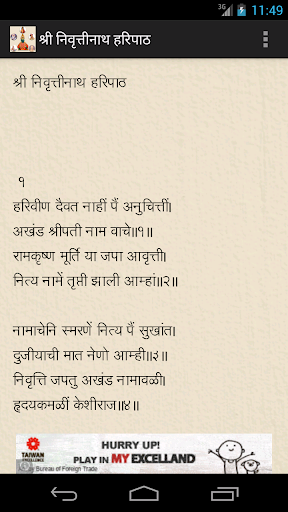 3G 11:49
श्री निवृत्तीनाथ हरिपाठ
श्री निवृत्तीनाथ हरिपाठ
१
हरिवीण दैवत नाहीं पैं अनुचित्तीं।
अखंड श्रीपती नाम वाचे॥१॥
रामकृष्ण मूर्ति या जपा आवृत्ती।
नित्य नामें तृप्ती झाली आम्हां॥२॥
नामाचेनि स्मरणें नित्य पैं सुखांत।
दुजीयाची मात नेणो आम्ही॥३॥
निवृत्ति जपतु अखंड नामावळी।
हृदयकमळीं केशीराज॥४॥
HURRY UP!
PLAY IN MY EXCELLAND
TAIWAN
EXCELLENCE
Bureau of Foreign Trade